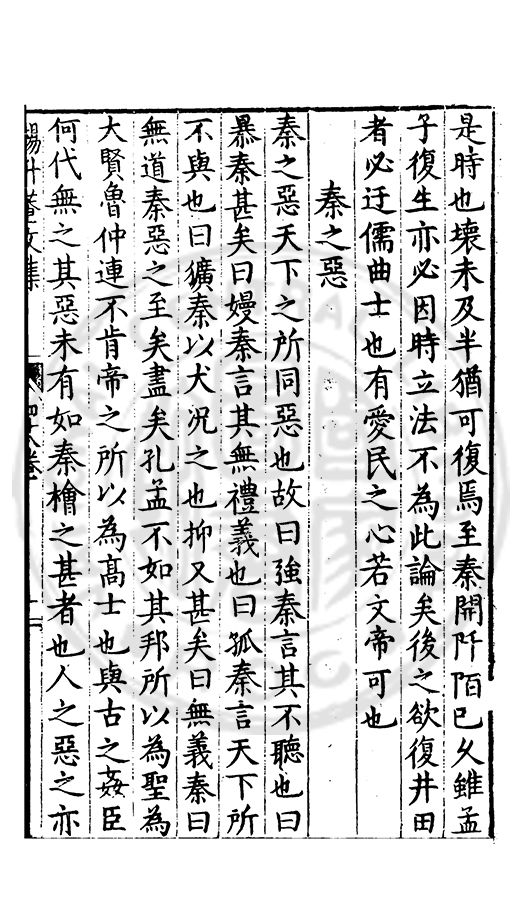 是時也壞未及半猶可復焉至秦開阡陌已久雖孟
子復生亦必因時立法不為此論矣後之欲復井田
者必迂儒曲士也有愛民之心若文帝可也
秦之惡
秦之惡天下之所同惡也故曰強秦言其不聽也曰
暴秦甚矣曰嫚秦言其無禮義也曰孤秦言天下所
不與也曰獷秦以犬況之也抑又甚矣曰無義秦曰
無道秦惡之至矣盡矣孔孟不如其邦所以為聖為
大賢魯仲連不肯帝之所以為高士也與古之姦臣
何代無之其惡未有如秦檜之甚者也人之惡之亦
楊升菴文集